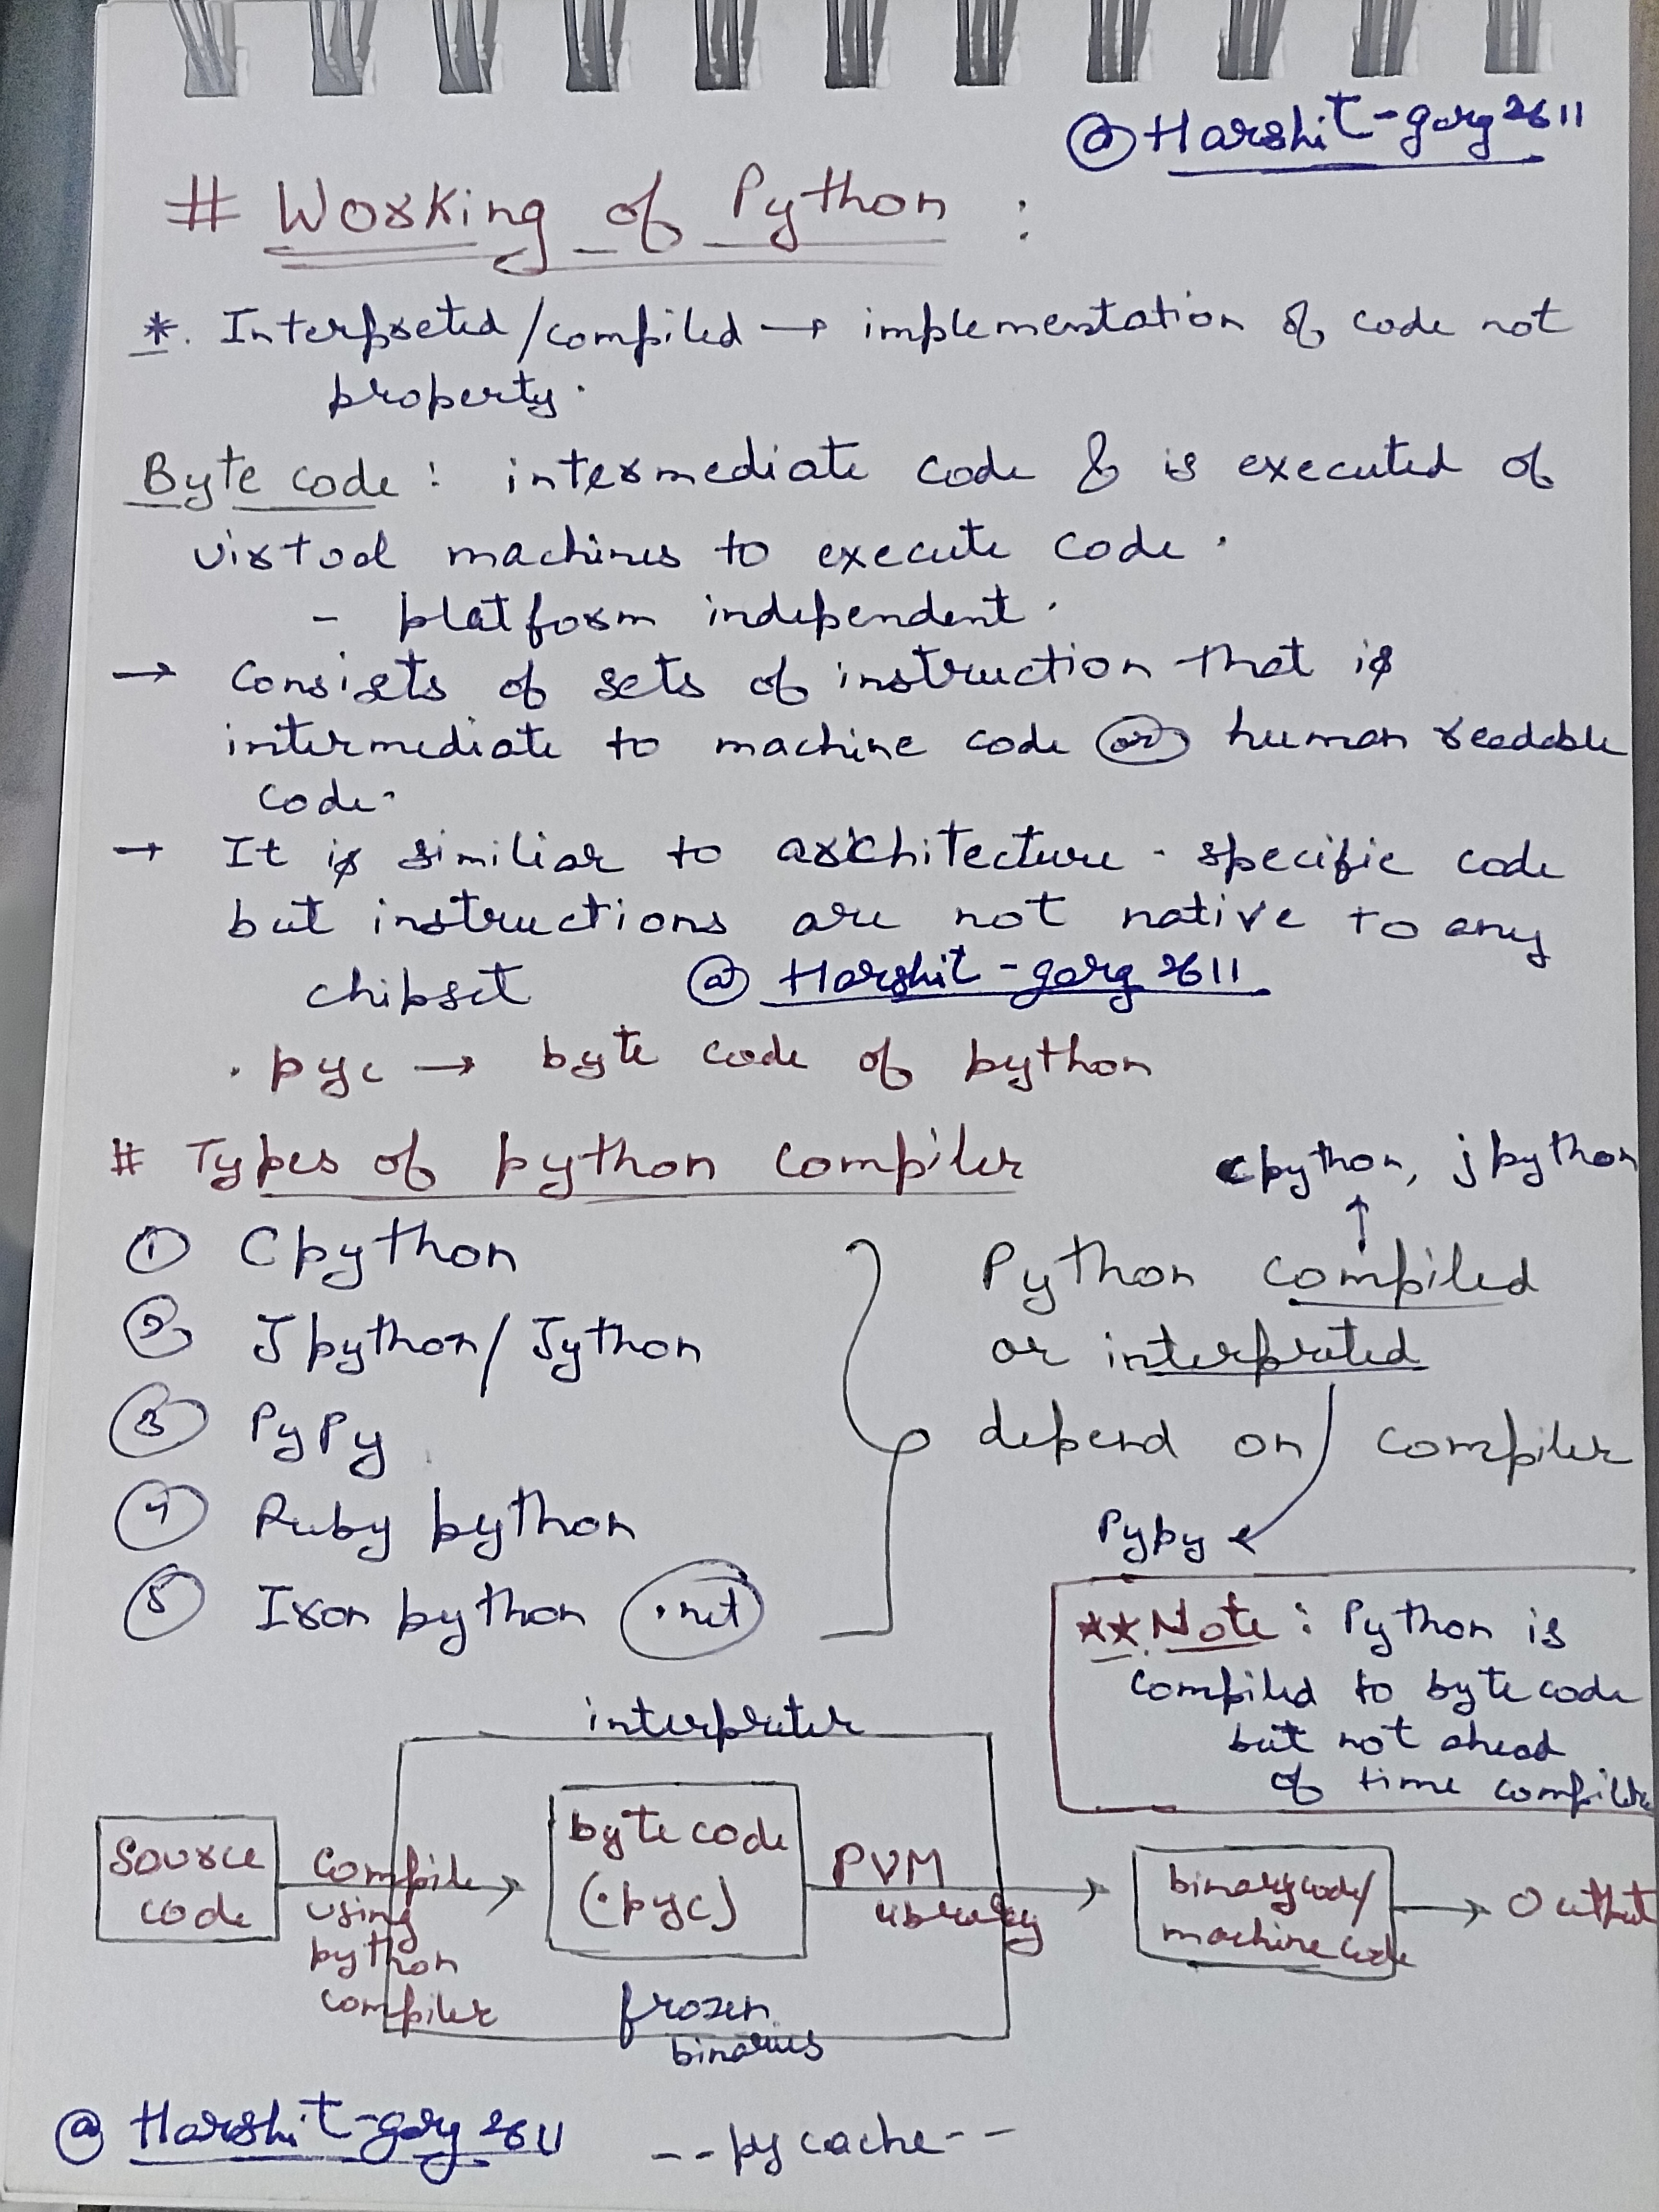 @Harshit-garg2611
# Working of Python :
*. Interpreted/compiled → implementation of code not
property.
Byte code : intermediate code & is executed of
virtual machines to execute code.
- platform independent.
→ Consists of sets of instruction that is
intermediate to machine code or human readable
code.
→ It is similiar to architecture-specific code
but instructions are not native to any
chipset @Harshit-garg2611
.pyc → byte code of python
# Types of python compiler
cpython, jpython
↑
① Cpython
② Jpython/Jython
③ PyPy
④ Ruby python
⑤ Iron python .net
Python compiled
or interpreted
depend on compiler
Pypy
**Note: Python is
compiled to byte code
but not ahead
of time compiler
interpreter
Source
code
Compile
using
python
compiler
byte code
(.pyc)
PVM
library
binarycode/
machine code
Output
frozen
binaries
@Harshit-garg2611
--pycache--